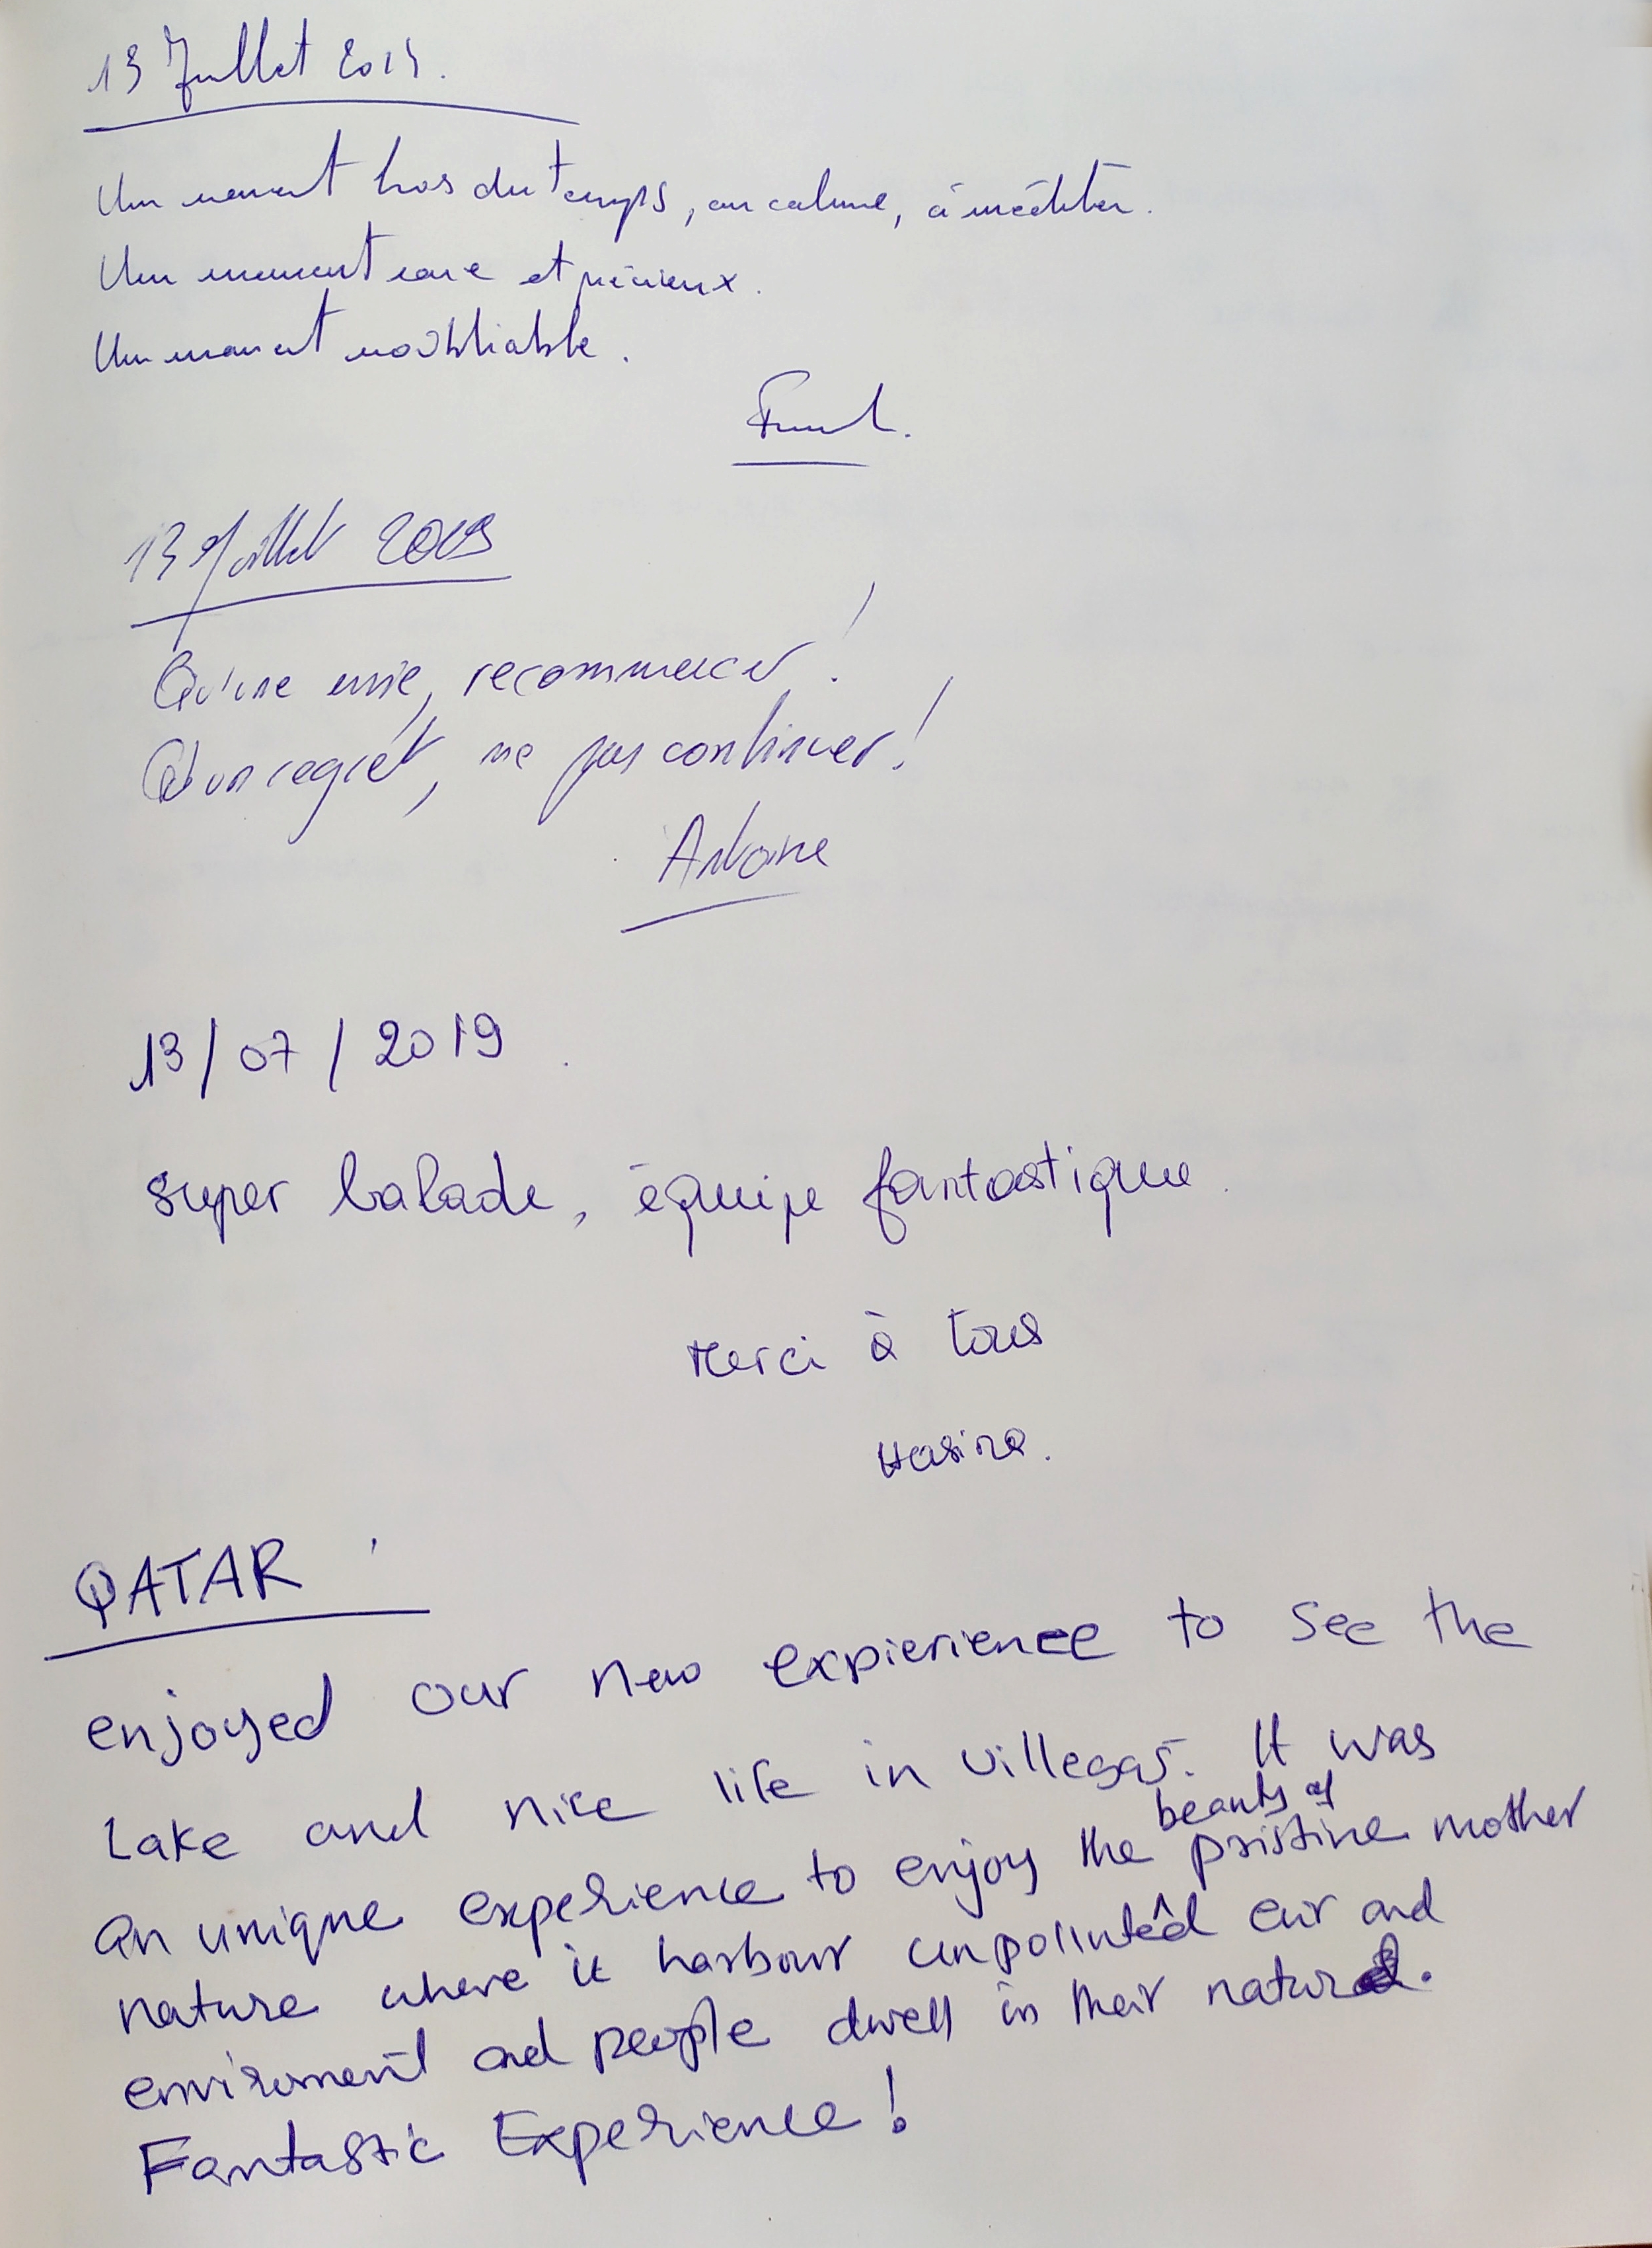 13 Juillet 2019.
Un moment hors du temps, au calme, à méditer.
Un moment rare et précieux.
Un moment inoubliable.
13 Juillet 2019
Qu'une envie, recommencer !
Qu'un regret, ne pas continuer !
Antoine
13/07/2019
super balade, équipe fantastique.
Merci à tous
Hasina.
QATAR
enjoyed our new expierience to see the
Lake and nice life in villegas. It was
beauty of
an unique experience to enjoy the pristine mother
nature where it harbour unpolluted air and
enviroment and people dwell in their
Fantastic Experience!